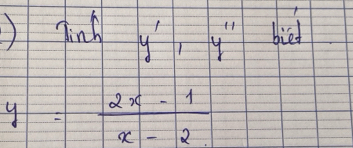 ) Tính y', y'' biết
y = \frac{2x - 1}{x - 2}.